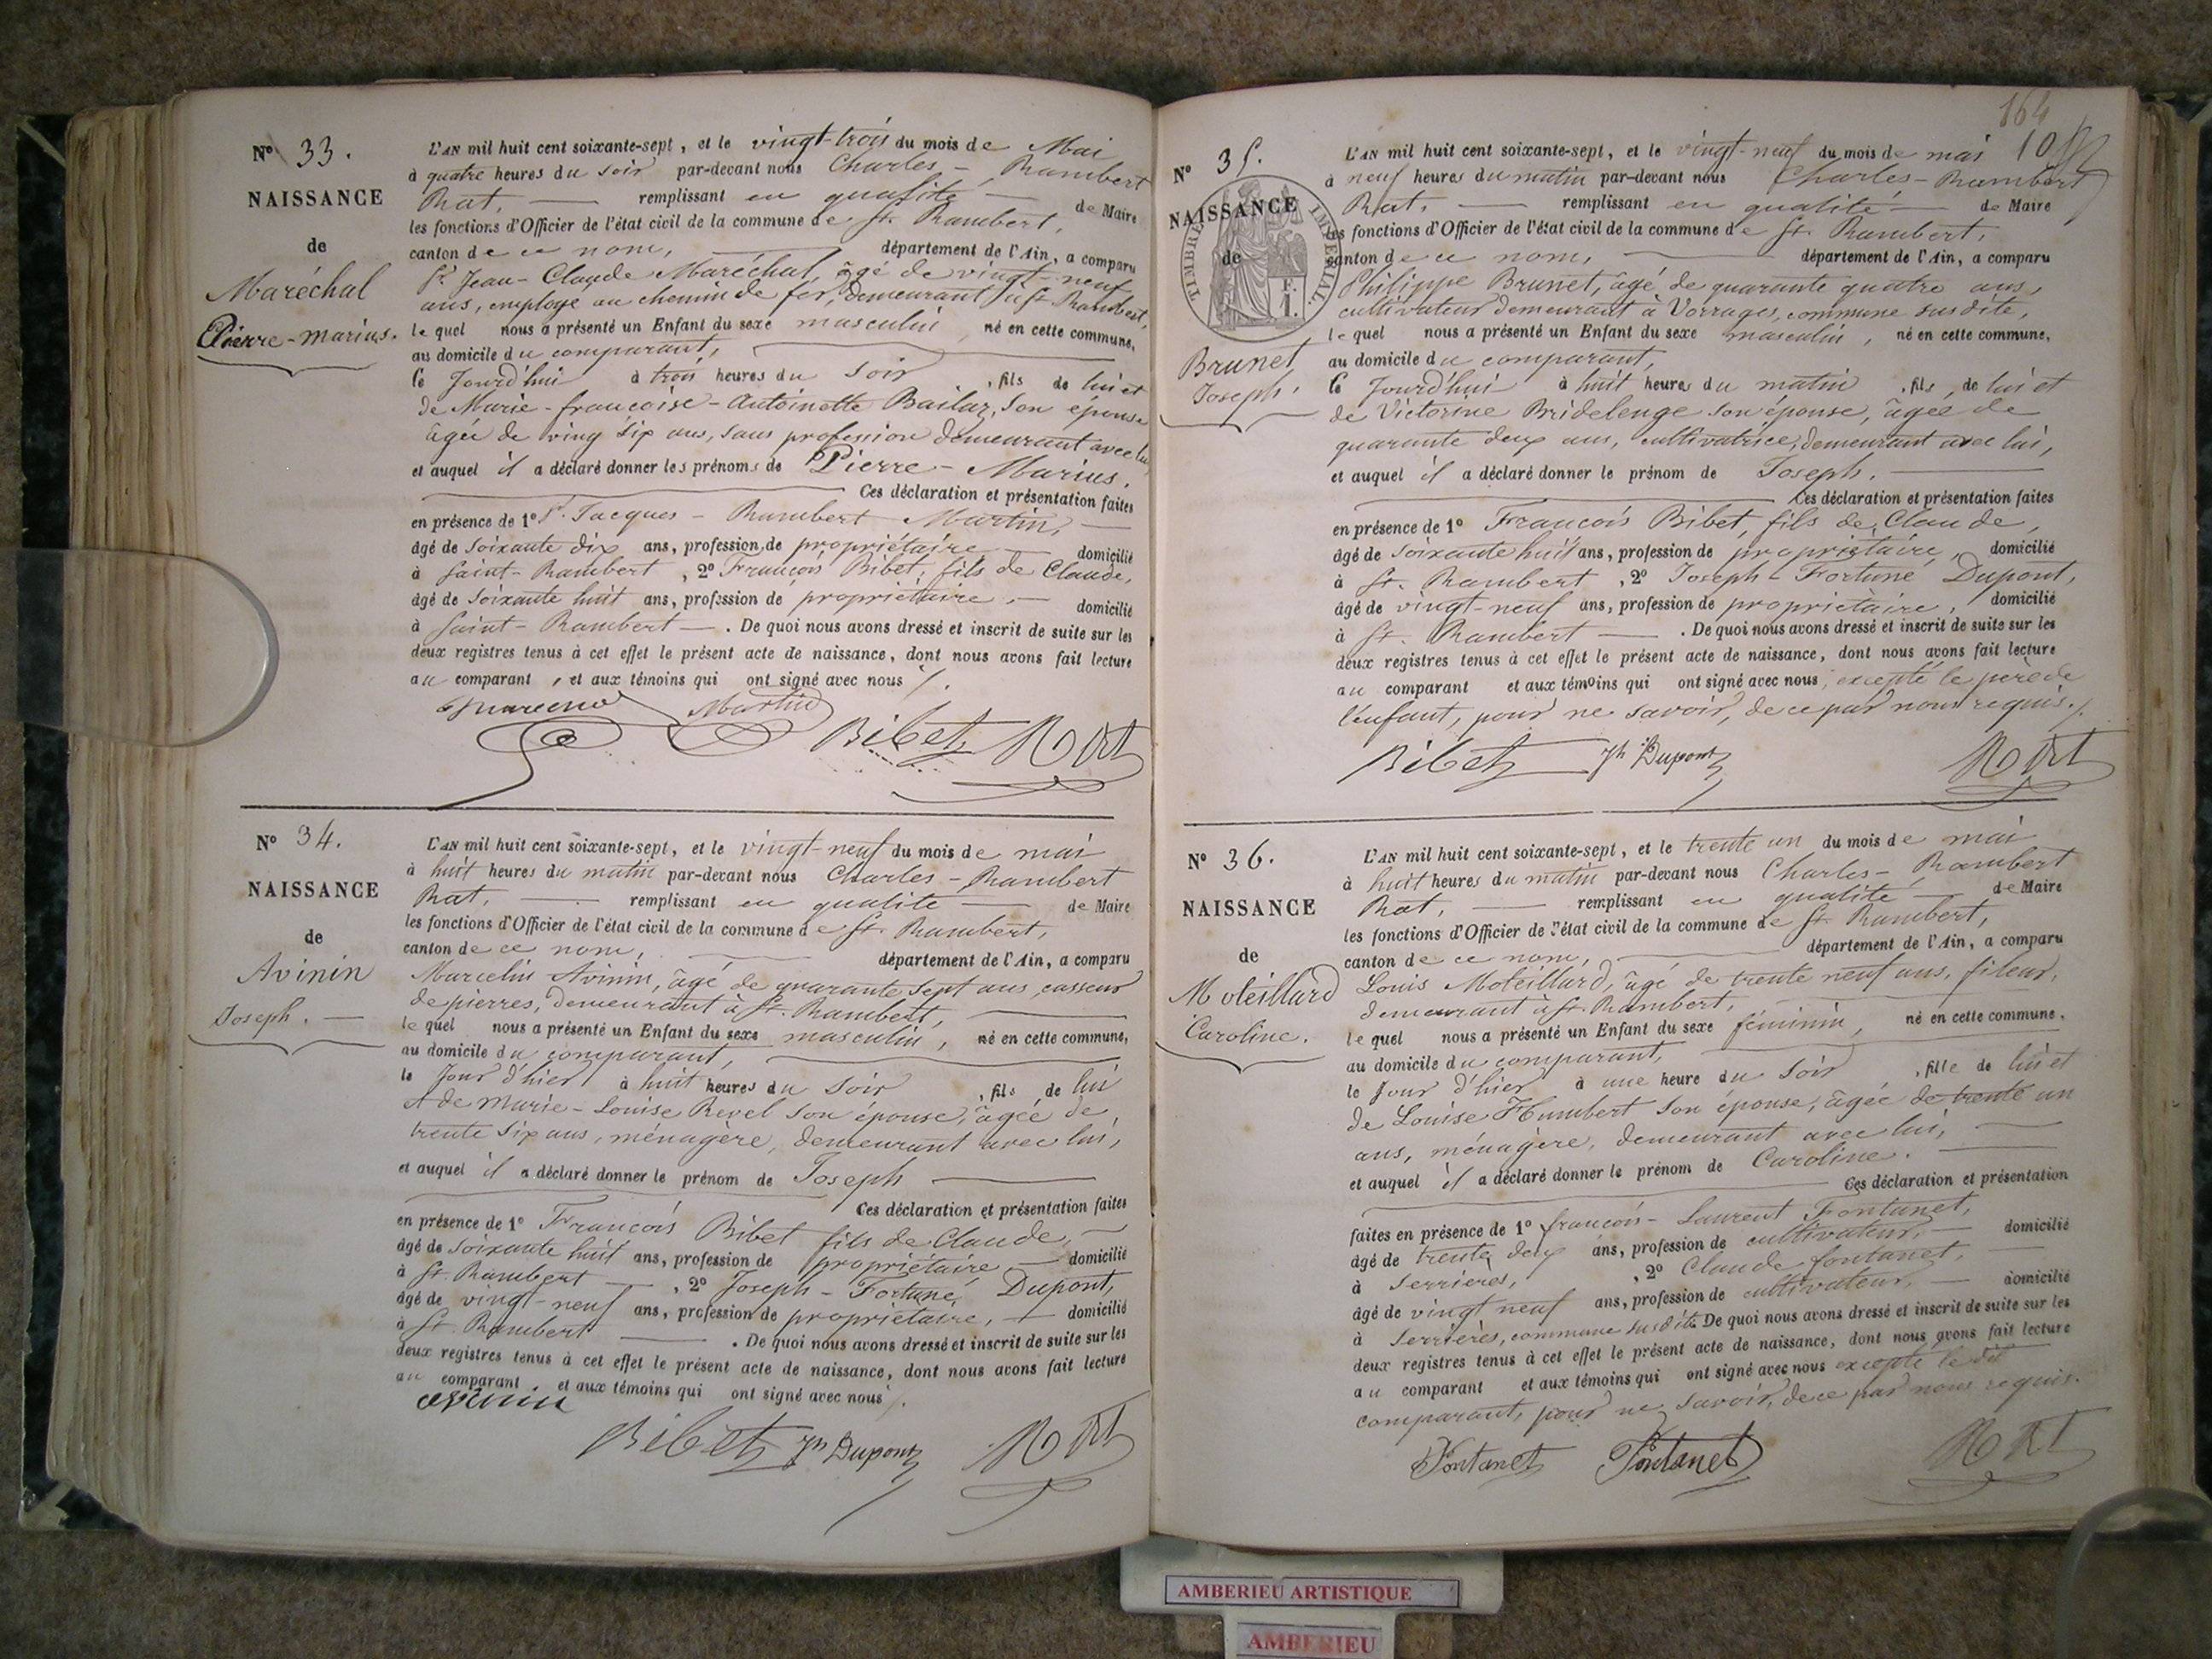 N° 33.
NAISSANCE
de
Maréchal
Pierre-marius.
L'AN mil huit cent soixante-sept, et le vingt-trois du mois de Mai
à quatre heures du soir par-devant nous Charles - Rambert
Rat, remplissant en qualité de Maire
les fonctions d'Officier de l'état civil de la commune de St. Rambert,
canton de ce nom, département de l'Ain, a comparu
Sr. Jean-Claude Maréchal, âgé de vingt-neuf
ans, employé au chemin de fer, demeurant à St. Rambert,
le quel nous a présenté un Enfant du sexe masculin né en cette commune,
au domicile du comparant,
le Jourd'hui à trois heures du Soir, fils de lui et
de Marie-françoise-Antoinette Bailar, Son épouse
âgée de ving six ans, sans profession demeurant avec lui
et auquel il a déclaré donner les prénoms de Pierre-Marius.
Ces déclaration et présentation faites
en présence de 1° Sr. Jacques - Rambert Martin,
âgé de Soixante dix ans, profession de propriétaire domicilié
à Saint-Rambert, 2° François Bibet, fils de Claude,
âgé de Soixante huit ans, profession de propriétaire, domicilié
à Saint-Rambert. De quoi nous avons dressé et inscrit de suite sur les
deux registres tenus à cet effet le présent acte de naissance, dont nous avons fait lecture
au comparant, et aux témoins qui ont signé avec nous
Martin
Bibet Rat
N° 34.
NAISSANCE
de
Avinin
Joseph.
L'AN mil huit cent soixante-sept, et le vingt-neuf du mois de mai
à huit heures du matin par-devant nous Charles - Rambert
Rat, remplissant en qualité de Maire
les fonctions d'Officier de l'état civil de la commune de St. Rambert,
canton de ce nom, département de l'Ain, a comparu
Marcelin Avinin, âgé de quarante sept ans, casseur
de pierres, demeurant à St. Rambert,
le quel nous a présenté un Enfant du sexe masculin, né en cette commune,
au domicile du comparant,
le Jour d'hier à huit heures du Soir, fils de lui
et de Marie-Louise Revel son épouse, âgée de
trente six ans, ménagère, demeurant avec lui,
et auquel il a déclaré donner le prénom de Joseph
Ces déclaration et présentation faites
en présence de 1° François Bibet fils de Claude,
âgé de soixante huit ans, profession de propriétaire domicilié
à St. Rambert, 2° Joseph - Fortuné Dupont,
âgé de vingt-neuf ans, profession de propriétaire, domicilié
à St. Rambert. De quoi nous avons dressé et inscrit de suite sur les
deux registres tenus à cet effet le présent acte de naissance, dont nous avons fait lecture
au comparant et aux témoins qui ont signé avec nous
avinin
Bibet Jh Dupont Rat
164
N° 35.
NAISSANCE
de
TIMBRE IMPERIAL.
F.
1.
Brunet
Joseph.
L'AN mil huit cent soixante-sept, et le vingt-neuf du mois de mai
à neuf heures du matin par-devant nous Charles-Rambert
Rat, remplissant en qualité de Maire
les fonctions d'Officier de l'état civil de la commune de St. Rambert,
canton de ce nom, département de l'Ain, a comparu
Philippe Brunet, âgé de quarante quatre ans,
cultivateur demeurant à Vorrages, commune susdite,
le quel nous a présenté un Enfant du sexe masculin, né en cette commune,
au domicile du comparant,
le Jourd'hui à huit heures du matin, fils, de lui et
de Victorine Bridelenge son épouse, âgée de
quarante deux ans, cultivatrice, demeurant avec lui,
et auquel il a déclaré donner le prénom de Joseph.
Ces déclaration et présentation faites
en présence de 1° François Bibet, fils de Claude,
âgé de soixante huit ans, profession de propriétaire, domicilié
à St. Rambert, 2° Joseph - Fortuné Dupont,
âgé de vingt-neuf ans, profession de propriétaire, domicilié
à St. Rambert. De quoi nous avons dressé et inscrit de suite sur les
deux registres tenus à cet effet le présent acte de naissance, dont nous avons fait lecture
au comparant et aux témoins qui ont signé avec nous, excepté le père de
l'enfant, pour ne savoir, de ce par nous requis.
Bibet Jh Dupont Rat
N° 36.
NAISSANCE
de
Moteillard
Caroline.
L'AN mil huit cent soixante-sept, et le trente un du mois de mai
à huit heures du matin par-devant nous Charles-Rambert
Rat, remplissant en qualité de Maire
les fonctions d'Officier de l'état civil de la commune de St. Rambert,
canton de ce nom, département de l'Ain, a comparu
Louis Moteillard, âgé de trente neuf ans, fileur,
demeurant à St. Rambert,
le quel nous a présenté un Enfant du sexe féminin, né en cette commune.
au domicile du comparant,
le Jour d'hier à une heure du Soir, fille de lui et
de Louise Humbert son épouse, âgée de trente un
ans, ménagère, demeurant avec lui,
et auquel il a déclaré donner le prénom de Caroline.
Ces déclaration et présentation
faites en présence de 1° françois-Laurent Fontanet,
âgé de trente deux ans, profession de cultivateur, domicilié
à Serrières, 2° Claude fontanet,
âgé de vingt neuf ans, profession de cultivateur, domicilié
à Serrières, commune susdite De quoi nous avons dressé et inscrit de suite sur les
deux registres tenus à cet effet le présent acte de naissance, dont nous avons fait lecture
au comparant et aux témoins qui ont signé avec nous excepté le dit
comparant, pour ne savoir, de ce par nous requis.
Fontanet Fontanet Rat
AMBERIEU ARTISTIQUE
AMBERIEU